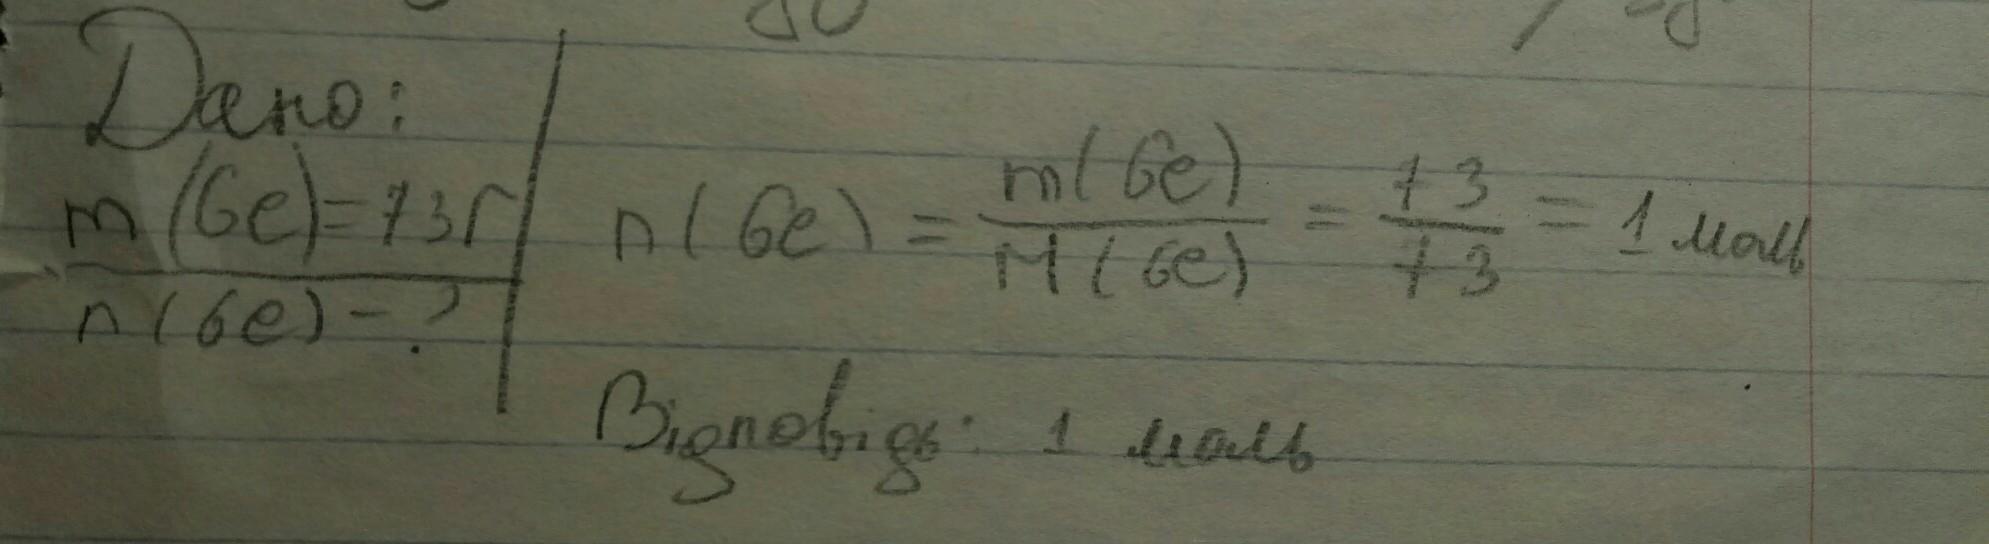 Дано:
m(Ge)=73г
n(Ge)-?
n(Ge) = m(Ge) / M(Ge) = 73 / 73 = 1 моль
Відповідь: 1 моль